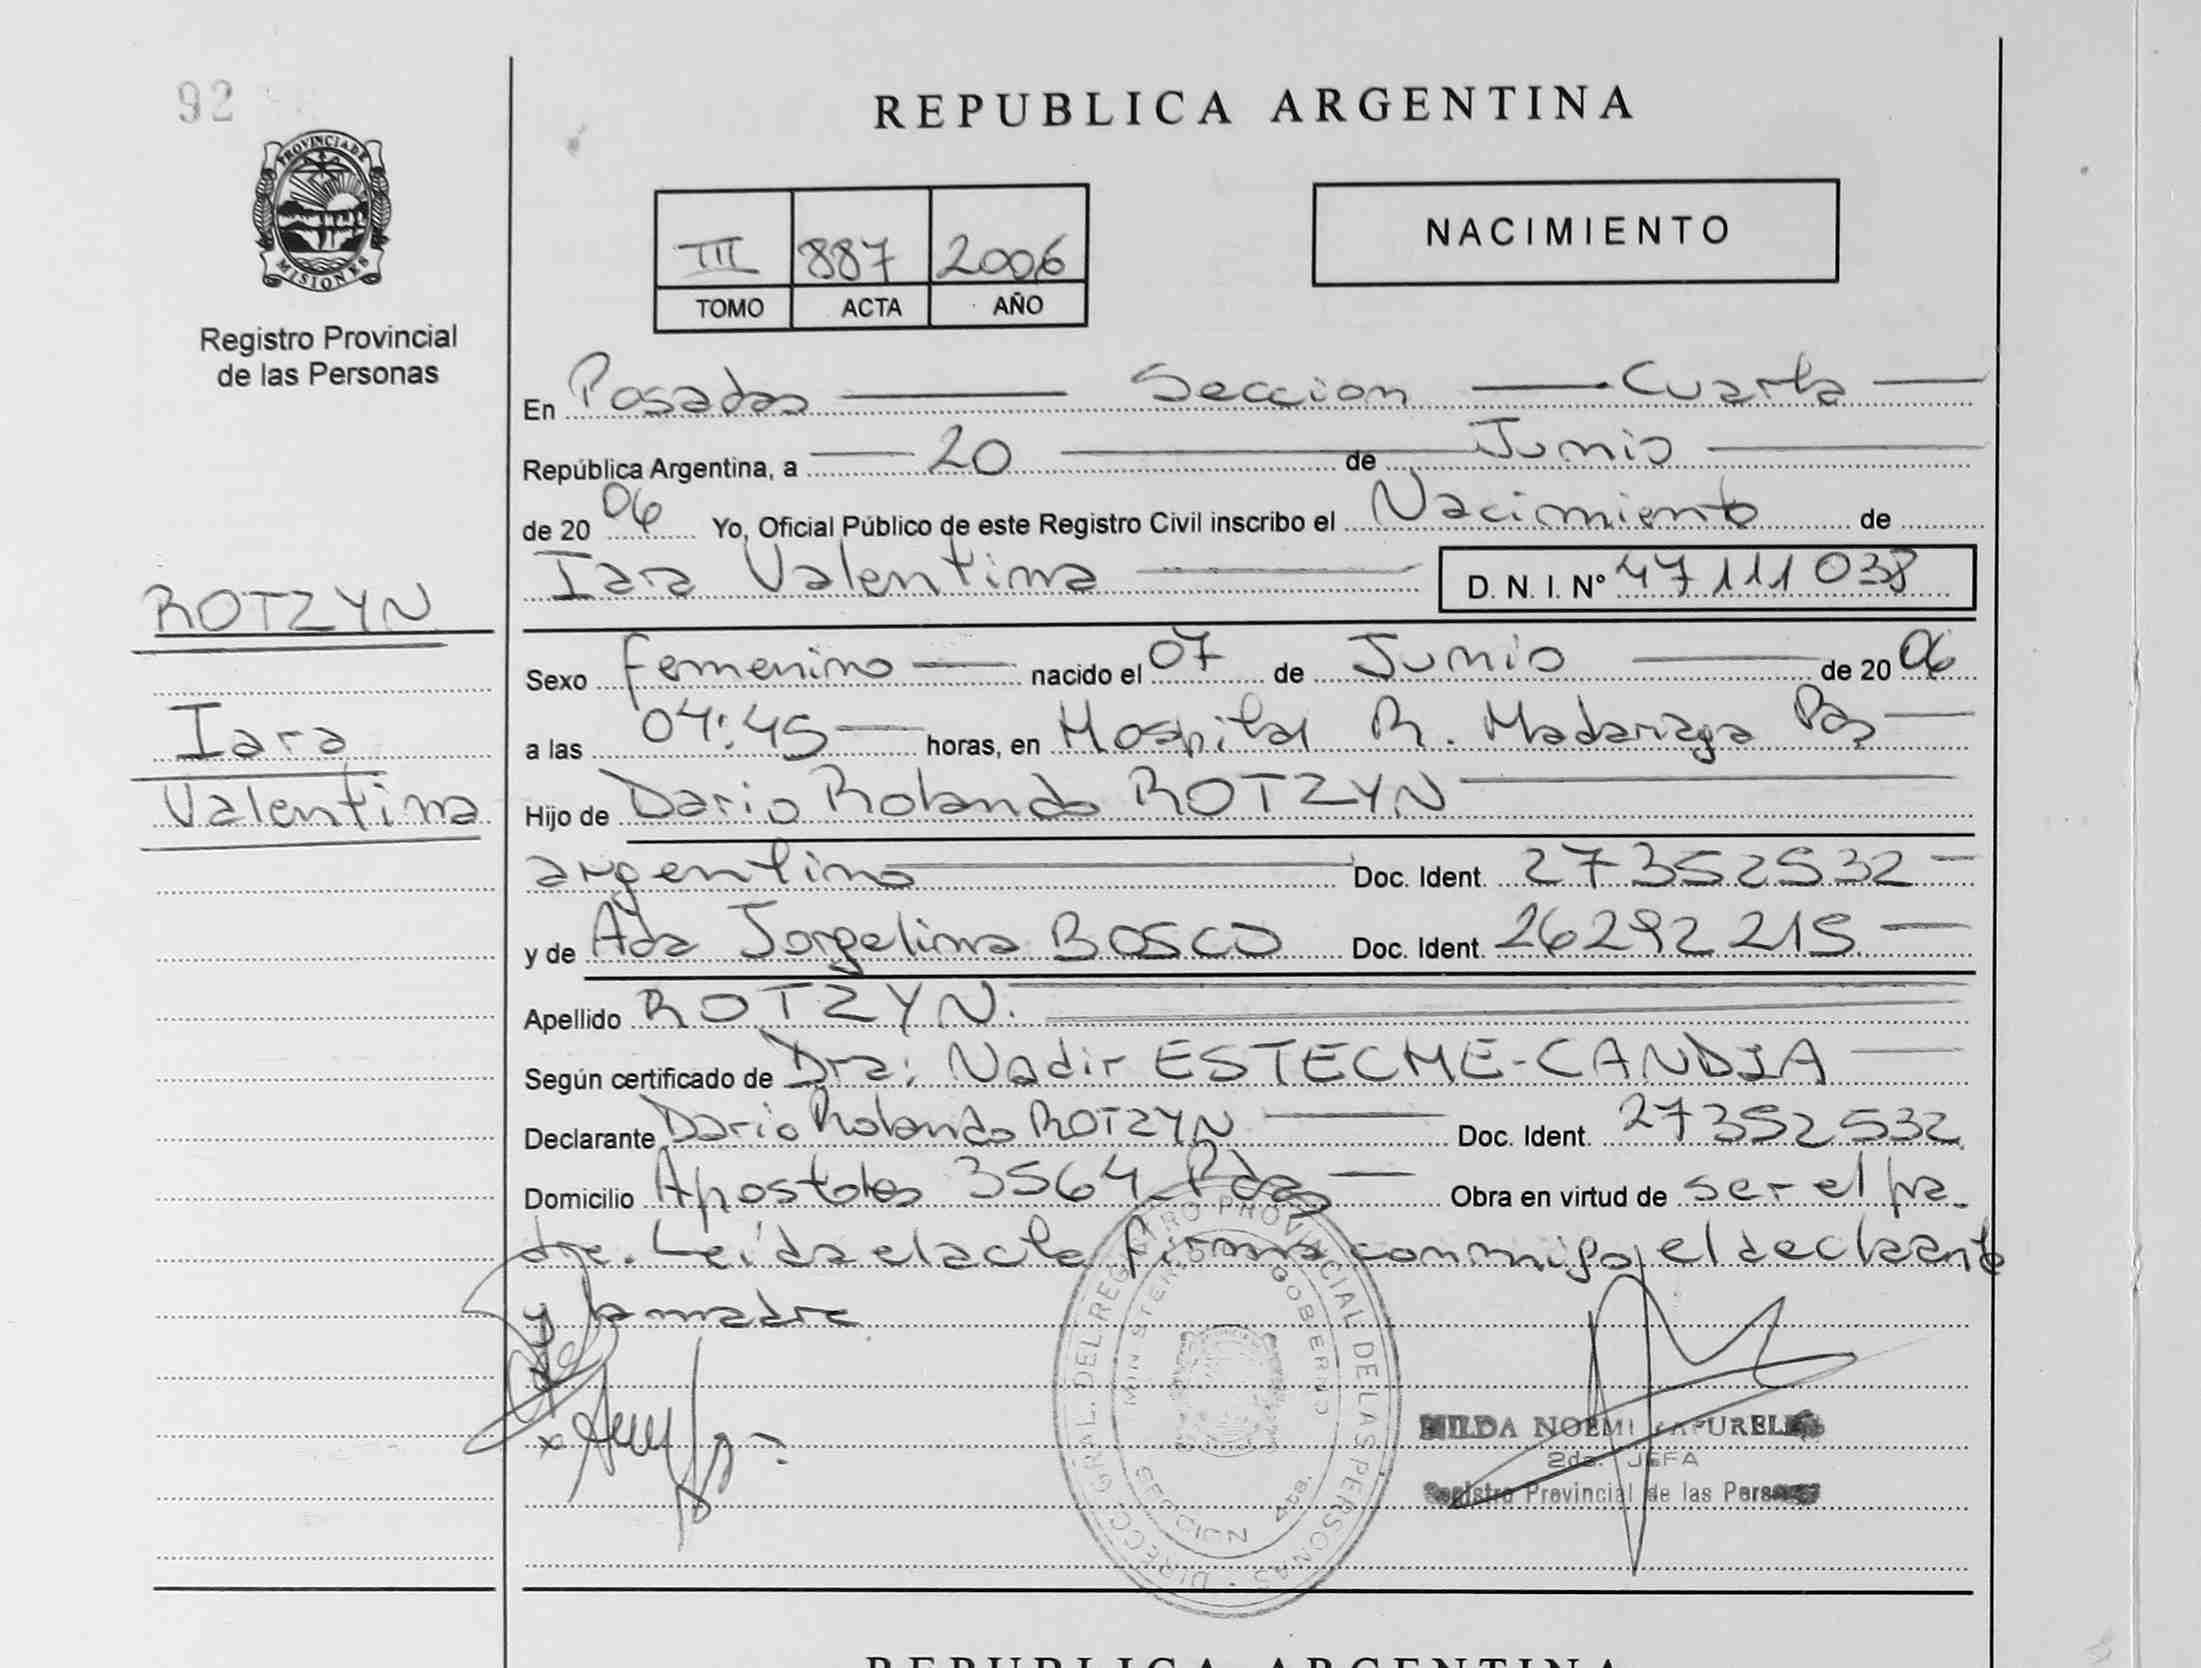 92
REPUBLICA ARGENTINA
PROVINCIA DE
MISIONES
Registro Provincial
de las Personas
III 887 2006
TOMO ACTA AÑO
NACIMIENTO
En Posadas Seccion Cuarta
República Argentina, a 20 de Junio
de 20 06 Yo, Oficial Público de este Registro Civil inscribo el Nacimiento de
Iara Valentina D. N. I. Nº 47111038
ROTZYN
Iara
Valentina
Sexo femenino nacido el 07 de Junio de 20 06
a las 04:45 horas, en Hospital R. Madariaga Pdas
Hijo de Dario Rolando ROTZYN
argentino Doc. Ident. 27352532
y de Ada Jorgelina BOSCO Doc. Ident. 26292215
Apellido ROTZYN.
Según certificado de Dra: Nadir ESTECHE-CANDIA
Declarante Dario Rolando ROTZYN Doc. Ident. 27352532
Domicilio Apostoles 3564 Pdas Obra en virtud de ser el pa-
dre. Leída el acta firma conmigo, el declarante
y la madre.
DIRECC. GRAL. DEL REGISTRO PROVINCIAL DE LAS PERSONAS
MINISTERIO GOBIERNO
SECCION 4ta.
HILDA NOEMI
2da. JEFA
Registro Provincial de las Personas
REPUBLICA ARGENTINA